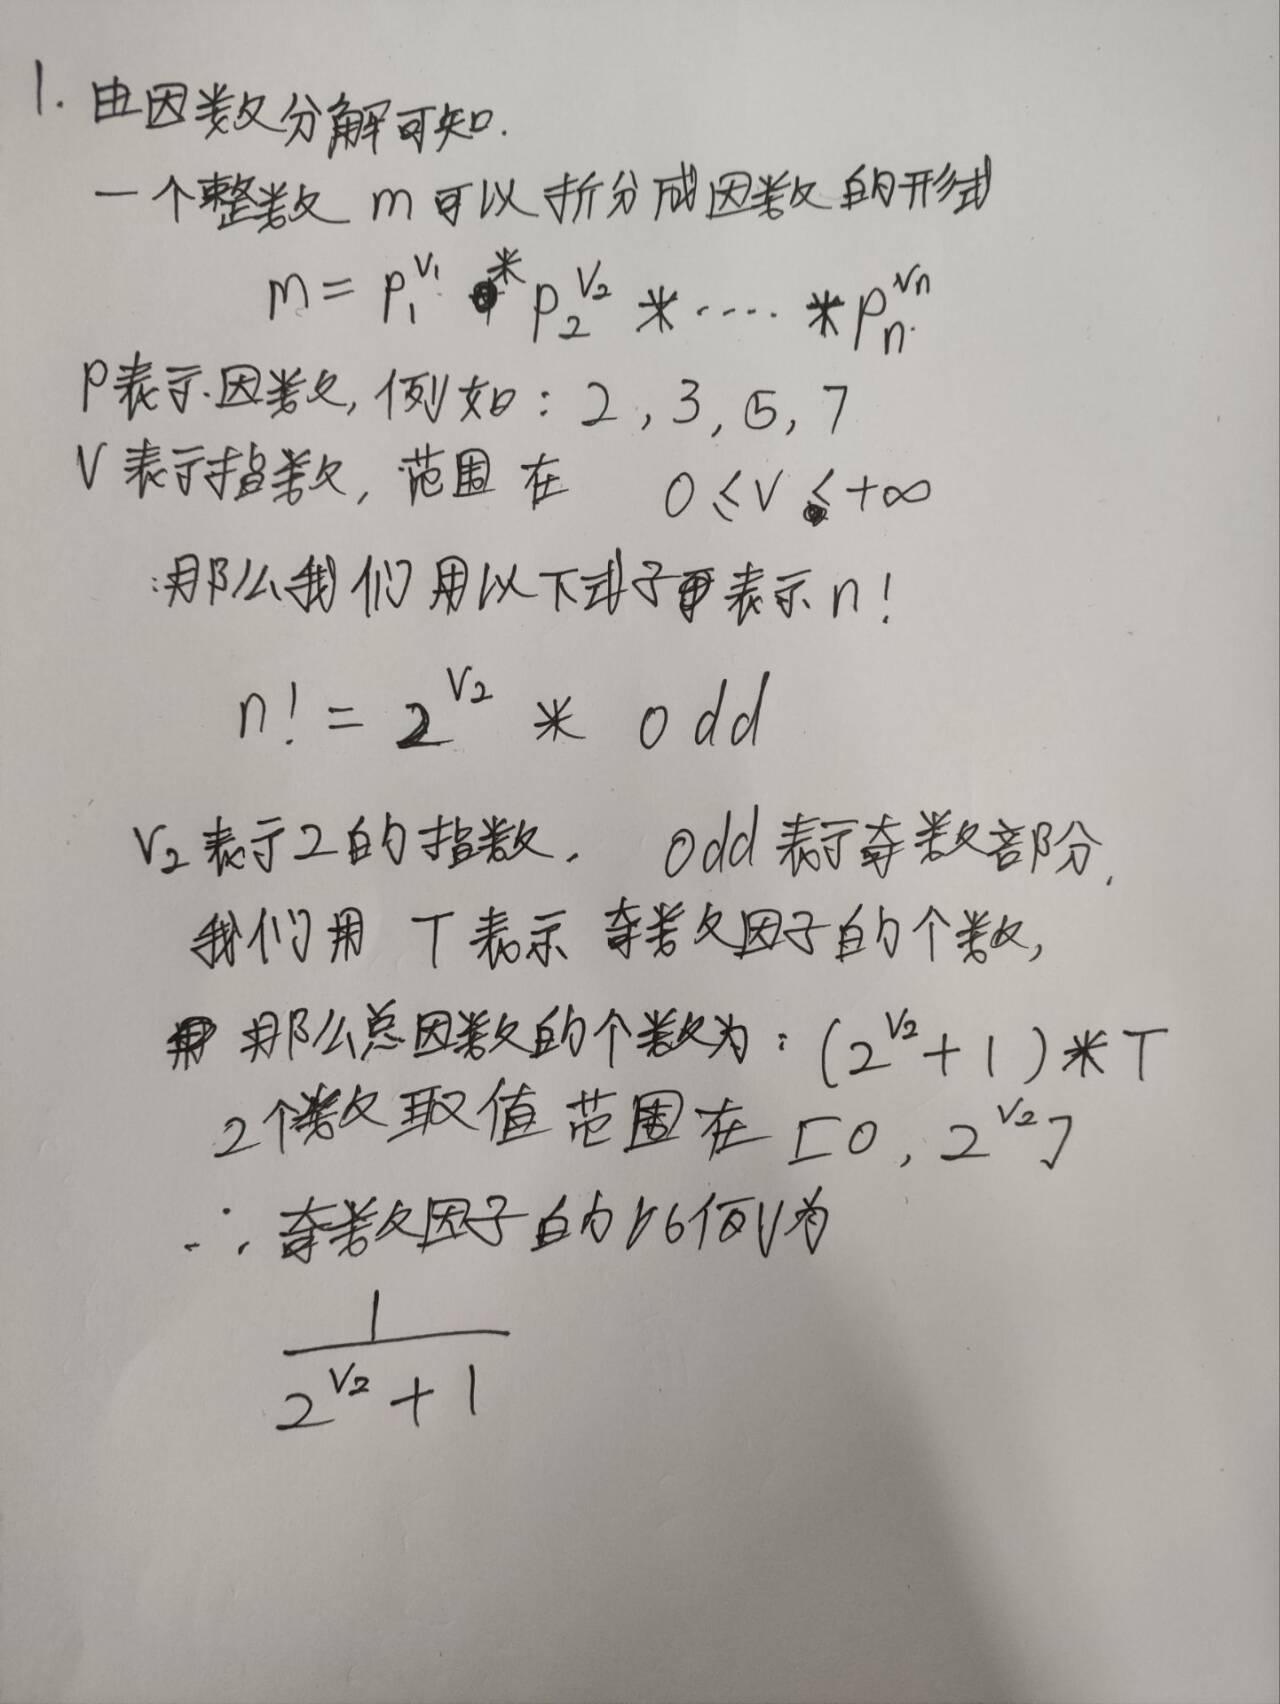 1. 由因数分解可知.
一个整数 m 可以折分成因数的形式
m = p₁^v₁ * p₂^v₂ * ····· * pₙ^vₙ.
p表示.因数, 例如: 2, 3, 5, 7
V 表示指数, 范围在 0 ≤ V ≤ +∞
:那么我们用以下式子表示 n!
n! = 2^V₂ * odd
V₂ 表示2的指数. odd 表示奇数部分.
我们用 T 表示 奇数因子的个数,
那么总因数的个数为: (2^V₂ + 1) * T
2个数取值范围在 [0, 2^V₂]
∴ 奇数因子的比例为
1
2^V₂ + 1